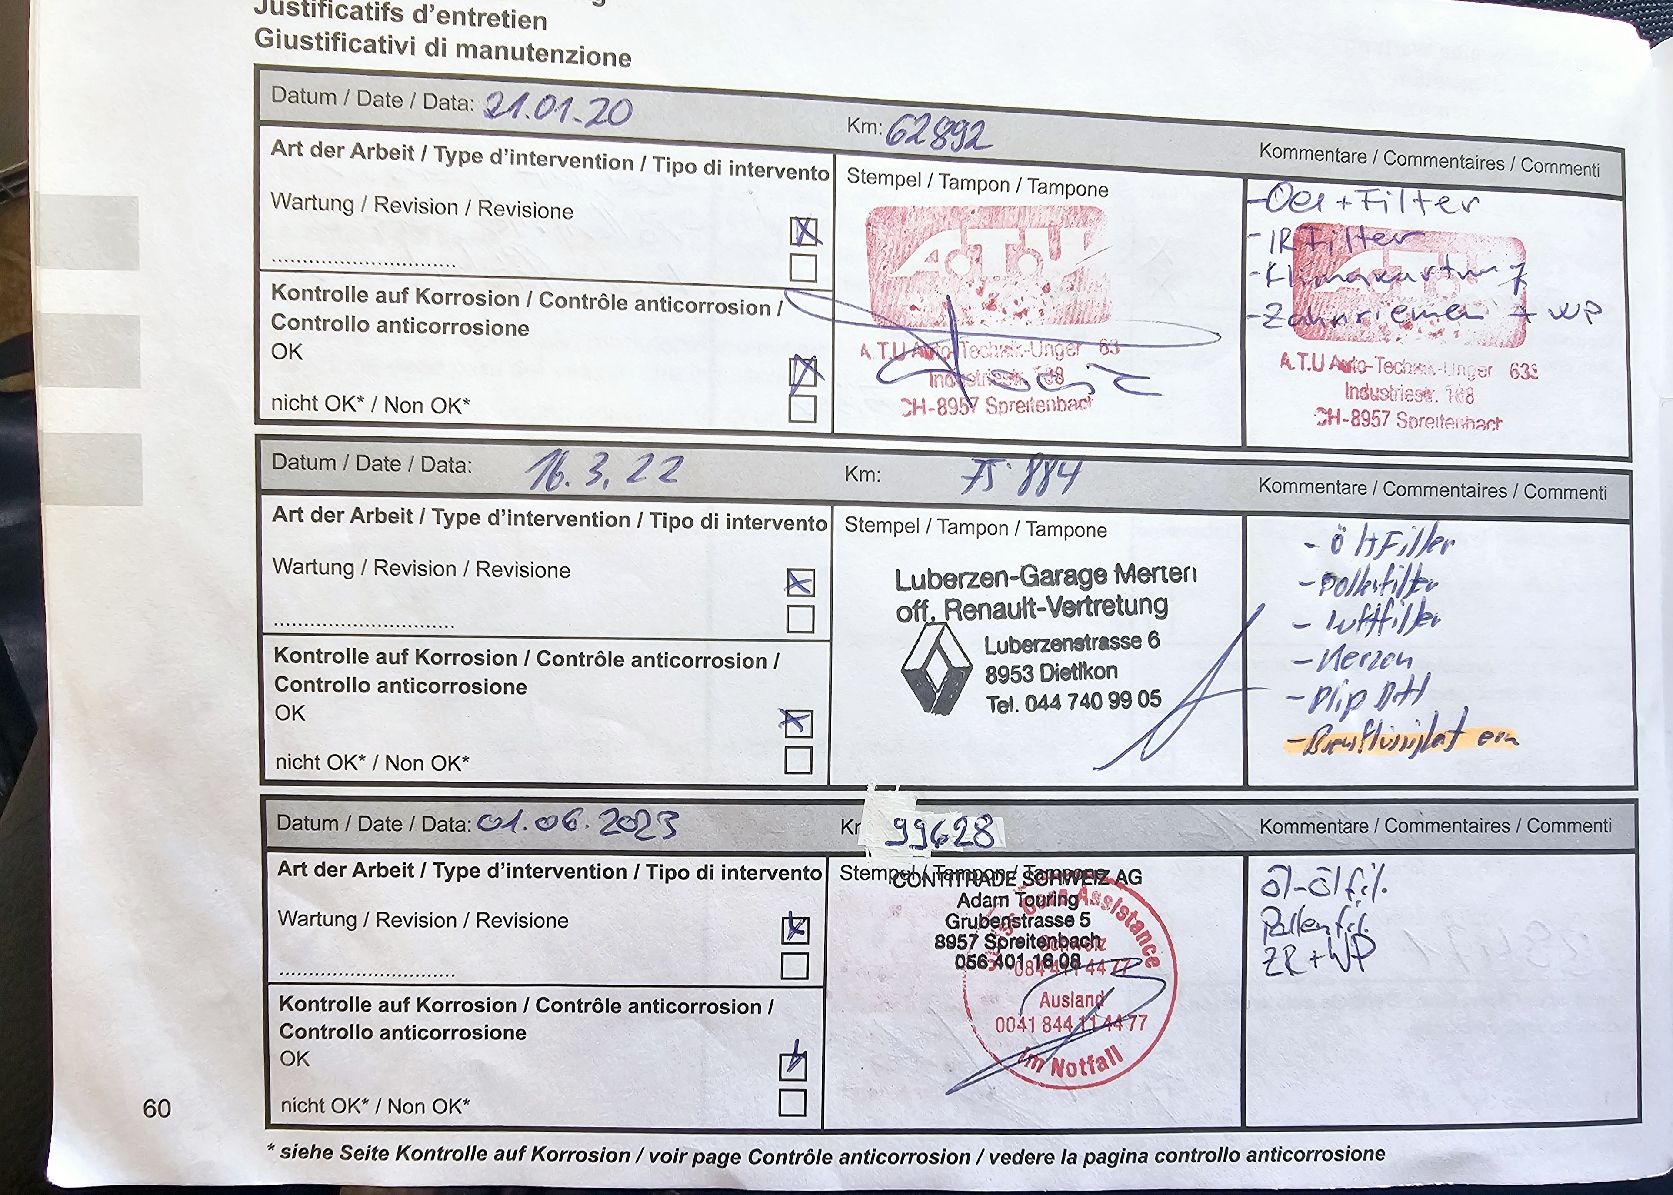 Justificatifs d'entretien
Giustificativi di manutenzione
Datum / Date / Data: 21.01.20
Km: 62892
Kommentare / Commentaires / Commenti
Art der Arbeit / Type d'intervention / Tipo di intervento
Wartung / Revision / Revisione
Kontrolle auf Korrosion / Contrôle anticorrosion /
Controllo anticorrosione
OK
nicht OK* / Non OK*
Stempel / Tampon / Tampone
A.T.U
A.T.U Auto-Technik-Unger 63
Industriestr. 168
CH-8957 Spreitenbach
- Oel + Filter
- IR Filter
- Klimawartung
- Zahnriemen + WP
A.T.U
A.T.U Auto-Technik-Unger 633
Industriestr. 168
CH-8957 Spreitenbach
Datum / Date / Data: 16.3.22
Km: 75'884
Kommentare / Commentaires / Commenti
Art der Arbeit / Type d'intervention / Tipo di intervento
Wartung / Revision / Revisione
Kontrolle auf Korrosion / Contrôle anticorrosion /
Controllo anticorrosione
OK
nicht OK* / Non OK*
Stempel / Tampon / Tampone
Luberzen-Garage Merten
off. Renault-Vertretung
Luberzenstrasse 6
8953 Dietikon
Tel. 044 740 99 05
- Öl+Filter
- Pollenfilter
- Luftfilter
- Kerzen
Datum / Date / Data: 01.06.2023
99628
Kommentare / Commentaires / Commenti
Art der Arbeit / Type d'intervention / Tipo di intervento
Wartung / Revision / Revisione
Kontrolle auf Korrosion / Contrôle anticorrosion /
Controllo anticorrosione
OK
nicht OK* / Non OK*
Stempel / Tampon / Tampone
CONTITRADE SCHWEIZ AG
Adam Touring
Grubenstrasse 5
8957 Spreitenbach
056 401 16 08
Assistance
Schweiz
0844 11 44 77
Ausland
0041 844 11 44 77
im Notfall
Öl-Ölfil.
Pollenfil.
ZR+WP
60
* siehe Seite Kontrolle auf Korrosion / voir page Contrôle anticorrosion / vedere la pagina controllo anticorrosione